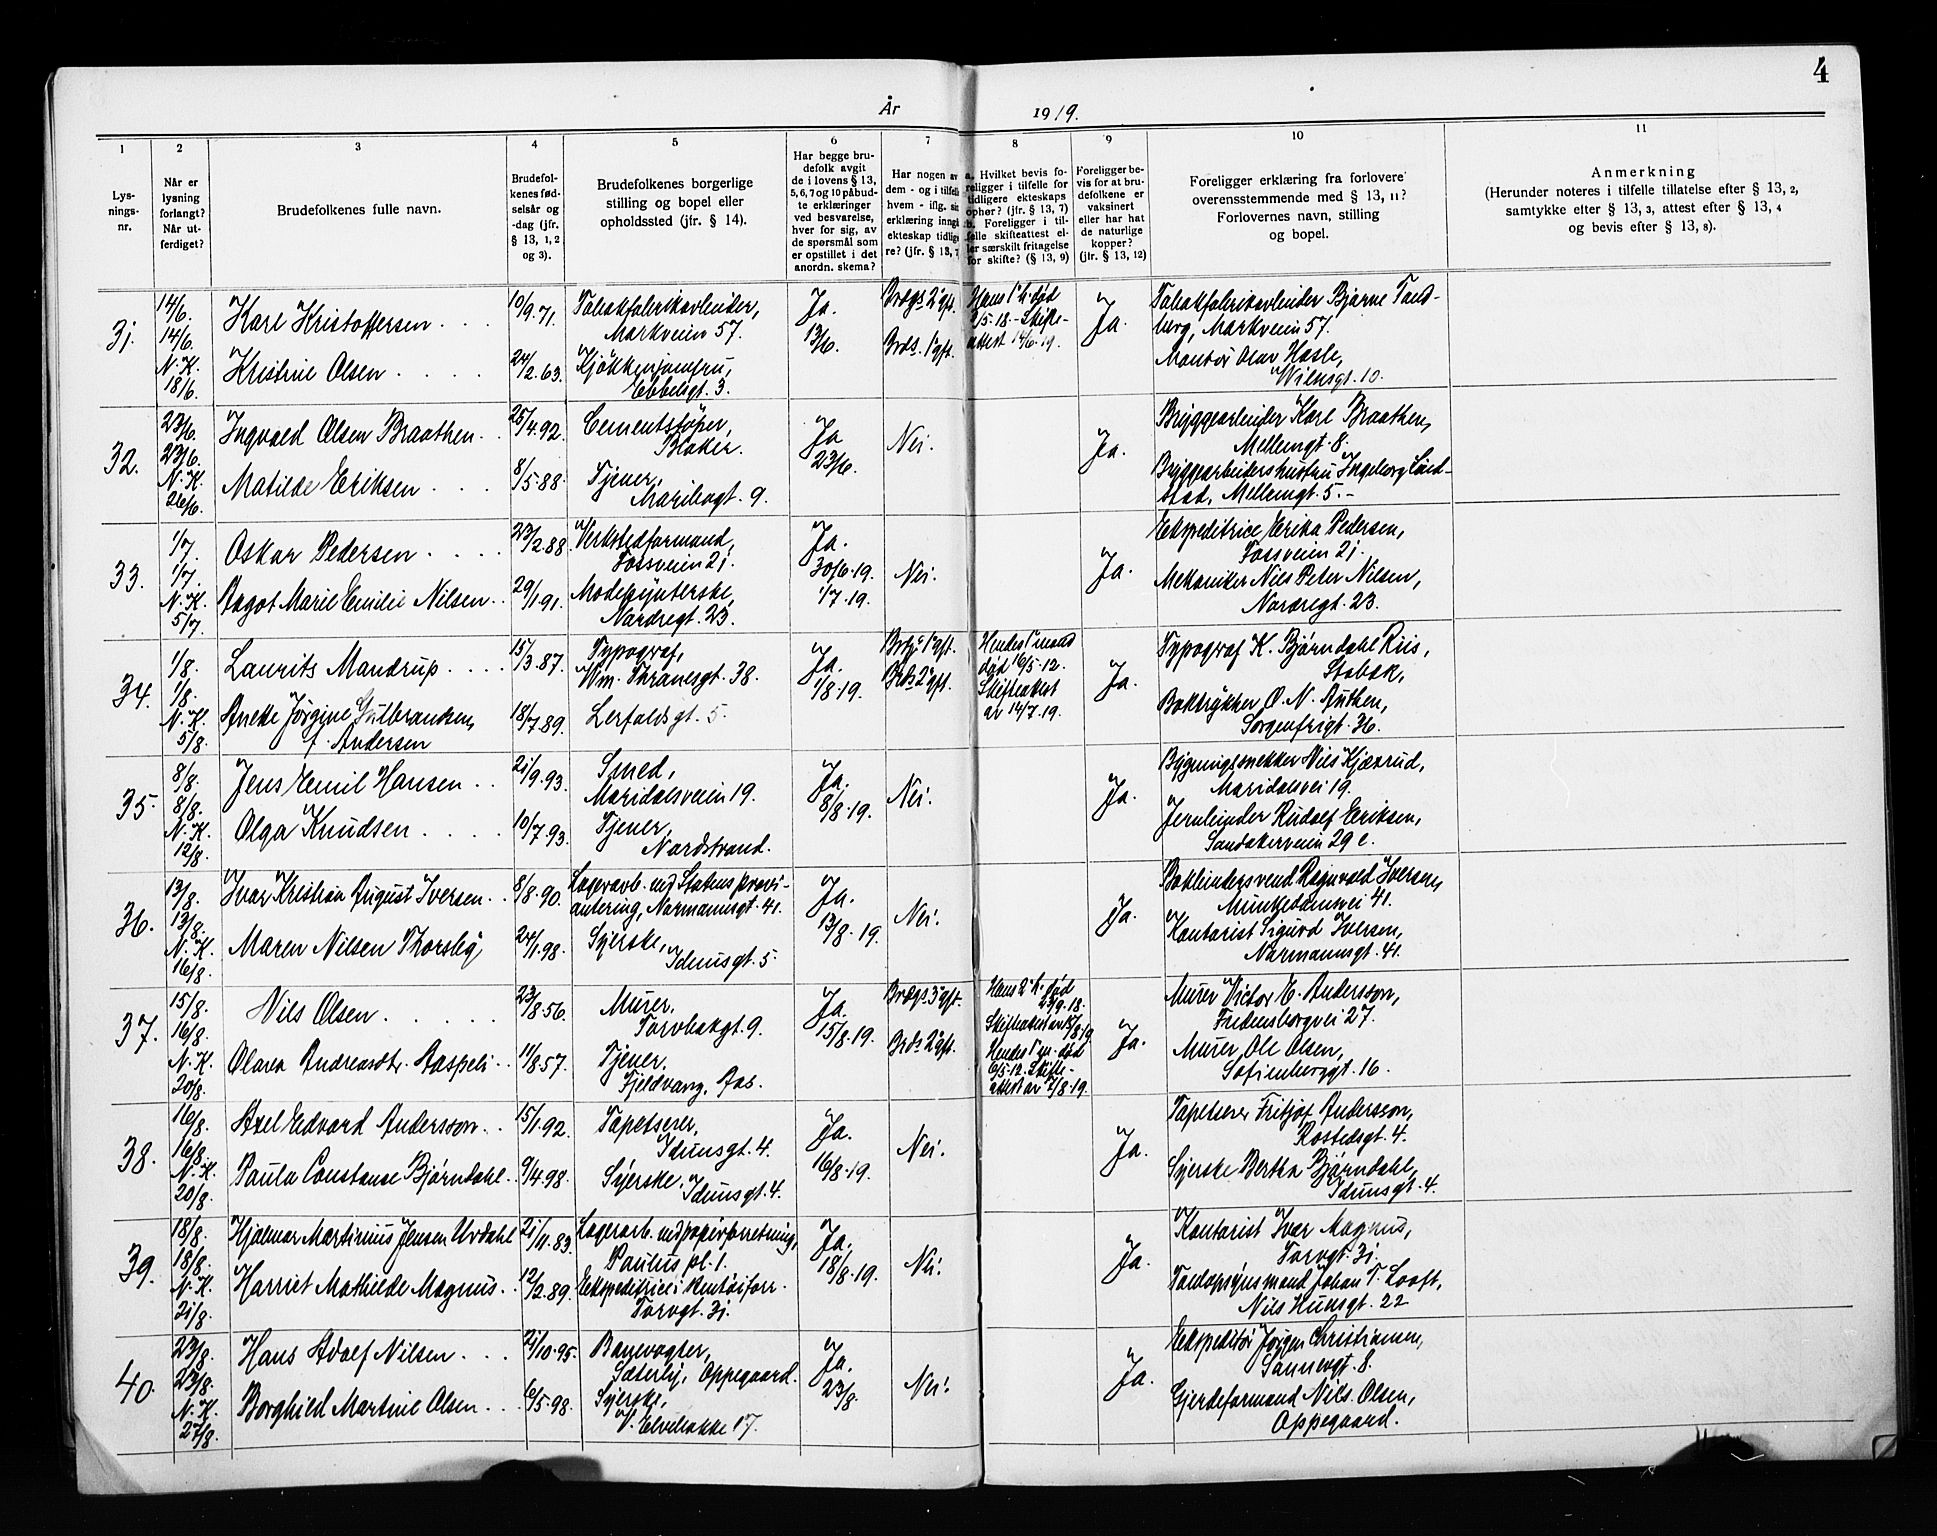 4
År 1919.
1 2 3 4 5 6 7 8 9 10 11
Lys-
nings-
nr.
Når er
lysning
forlangt?
Når ut-
ferdiget?
Brudefolkenes fulle navn.
Brudefol-
kenes fød-
selsår og
-dag (jfr.
§ 13, 1, 2
og 3).
Brudefolkenes borgerlige
stilling og bopel eller
opholdssted (jfr. § 14).
Har begge bru-
defolk avgit
de i lovens § 13,
5, 6, 7 og 10 påbud-
te erklæringer
ved besvarelse,
hver for sig, av
de spørsmål som
er opstillet i det
anordn. skema?
Har nogen av
dem - og i tilfelle
hvem - iflg. sin
erklæring inngå
ekteskap tidlige-
re? (jfr. § 13,
a. Hvilket bevis fo-
religger i tilfelle for
tidligere ekteskaps
ophør? (jfr. § 13, 7)
b. Foreligger i til-
felle skifteattest el-
ler særskilt fritagelse
for skifte? (§ 13, 9)
Foreligger be-
vis for at bru-
defolkene er
vaksinert
eller har hat
de naturlige
kopper?
(jfr. § 13, 12)
Foreligger erklæring fra forlovere
overensstemmende med § 13, 11?
Forlovernes navn, stilling
og bopel.
Anmerkning
(Herunder noteres i tilfelle tillatelse efter § 13, 2,
samtykke efter § 13, 3, attest efter § 13, 4
og bevis efter § 13, 8).
31.
14/6.
14/6.
N.K.
18/6.
Karl Kristoffersen
Kristine Olsen
10/9.71.
24/2.63.
Tobakfabrikarbeider,
Markveien 57.
Kjøkkenjomfru,
Ebbelsgt. 3.
Ja.
13/6.
Brdgs 2 gft.
Brds. 1 gft.
Hans 1 h. død
2/5.18. - Skifte-
attest 14/6.19.
Ja.
Tobakfabrikarbeider Bjarne Tand-
berg, Markveien 57.
Montør Olav Hasle,
Wilsesgt. 10.
32.
23/6.
23/6.
N.K.
26/6.
Ingvald Olsen Braathen
Matilde Eriksen
25/4.92.
8/5.88.
Cementstøper,
Blaker.
Tjener,
Maribogt. 9.
Ja
23/6.
Nei.
Ja.
Bryggearbeider Karl Braathen,
Mellemgt. 8.
Bryggearbeidershustru Ingeborg Lind-
stad, Mellemgt. 5. -
33.
1/7.
1/7.
N.K.
5/7.
Oskar Pedersen
Aagot Marie Emilie Nilsen
23/2.88.
29/1.91.
Verkstedformand,
Fossveien 21.
Modepynterske,
Nordregt. 23.
Ja.
30/6.19.
1/7.19.
Nei.
Ja.
Ekspeditrice Erika Pedersen,
Fossveien 21.
Mekaniker Nils Peter Nilsen,
Nordregt. 23.
34.
1/8.
1/8.
N.K.
5/8.
Laurits Mandrup
Anette Jørgine Gulbrandsen,
f. Andersen
15/3.87.
18/7.89.
Typograf,
Wm. Thranesgt. 38.
Lerfaldsgt. 5.
Ja.
1/8.19.
Brdg. 1 gft.
Brds 2 gft.
Hendes 1 mand
død 16/5.12.
Skifteattest
av 14/7.19.
Ja.
Typograf K. Bjørndahl Riis,
Stabæk,
Boktrykker O. N. Authen,
Sorgenfrigt. 36.
35.
8/8.
8/8.
N.K.
12/8.
Jens Emil Hansen
Olga Knudsen
21/9.93.
10/7.93.
Smed,
Maridalsveien 19.
Tjener,
Nordstrand.
Ja.
8/8.19.
Nei.
Ja.
Bygningssnekker Nils Kjærrud,
Maridalsvei 19.
Jernbinder Rudolf Eriksen,
Sandakerveien 29 c.
36.
13/8.
13/8.
N.K.
16/8.
Ivar Kristian August Iversen
Maren Nilsen Thorsby
8/8.90.
24/1.98.
Lagerarb. ved Statens provi-
antering, Normannsgt. 41.
Syerske,
Idunsgt. 5.
Ja.
13/8.19.
Nei.
Ja.
Bokbindersvend Ragnvald Iversen,
Munkedamsvei 41.
Kontorist Sigurd Iversen,
Normannsgt. 41.
37.
15/8.
16/8.
N.K.
20/8.
Nils Olsen
Olava Andreasdtr. Aaspeli
23/8.56.
11/8.57.
Murer,
Torvbakgt. 9.
Tjener,
Fjeldvang, Aas.
Ja.
15/8.19.
Brdgs 3 gft.
Brds 2 gft.
Hans 2 h. død
23/9.18.
Skifteattest av 15/8.19
Hendes 1 m. død
6/5.12. Skifte-
attest av 7/8.19.
Ja.
Murer Victor E. Andersson,
Fredensborgvei 27.
Murer Ole Olsen,
Sofienberggt. 16.
38.
16/8.
16/8.
N.K.
20/8.
Axel Edvard Andersson
Paula Constanse Bjørndahl
15/1.92.
9/4.98.
Tapetserer,
Idunsgt. 4.
Syerske,
Idunsgt. 4.
Ja.
16/8.19.
Nei.
Ja.
Tapetserer Fritjof Andersson,
Rostedsgt. 4.
Syerske Bertha Bjørndahl,
Idunsgt. 4.
39.
18/8.
18/8.
N.K.
21/8.
Hjalmar Martinius Jensen Urdahl
Harriet Mathilde Magnus
21/11.83.
12/2.89.
Lagerarb. ved papirforretning,
Paulus pl. 1.
Ekspeditrice i kontoirforr.
Torvgt. 31.
Ja.
18/8.19.
Nei.
Ja.
Kontorist Ivar Magnus,
Torvgt. 31.
Toldopsynsmand Johan T. Looft,
Nils Huusgt. 22
40.
23/8.
23/8.
N.K.
27/8.
Hans Adolf Nilsen
Borghild Martine Olsen
21/10.95.
6/5.98.
Banevogter,
Sæterby, Oppegaard.
Syerske,
V. Elvebakke 17.
Ja.
23/8.
Nei.
Ja.
Ekspeditør Jørgen Christiansen,
Sannergt. 8.
Gjerdeformand Nils Olsen,
Oppegaard.